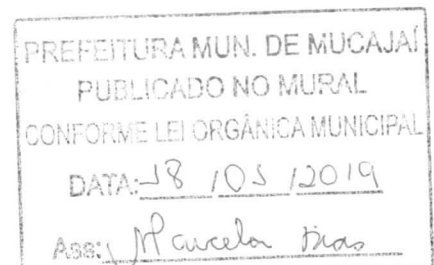 PREFEITURA MUN. DE MUCAJAÍ
PUBLICADO NO MURAL
CONFORME LEI ORGÂNICA MUNICIPAL
DATA: 18 / 03 / 2019
Ass: Marcela Dias